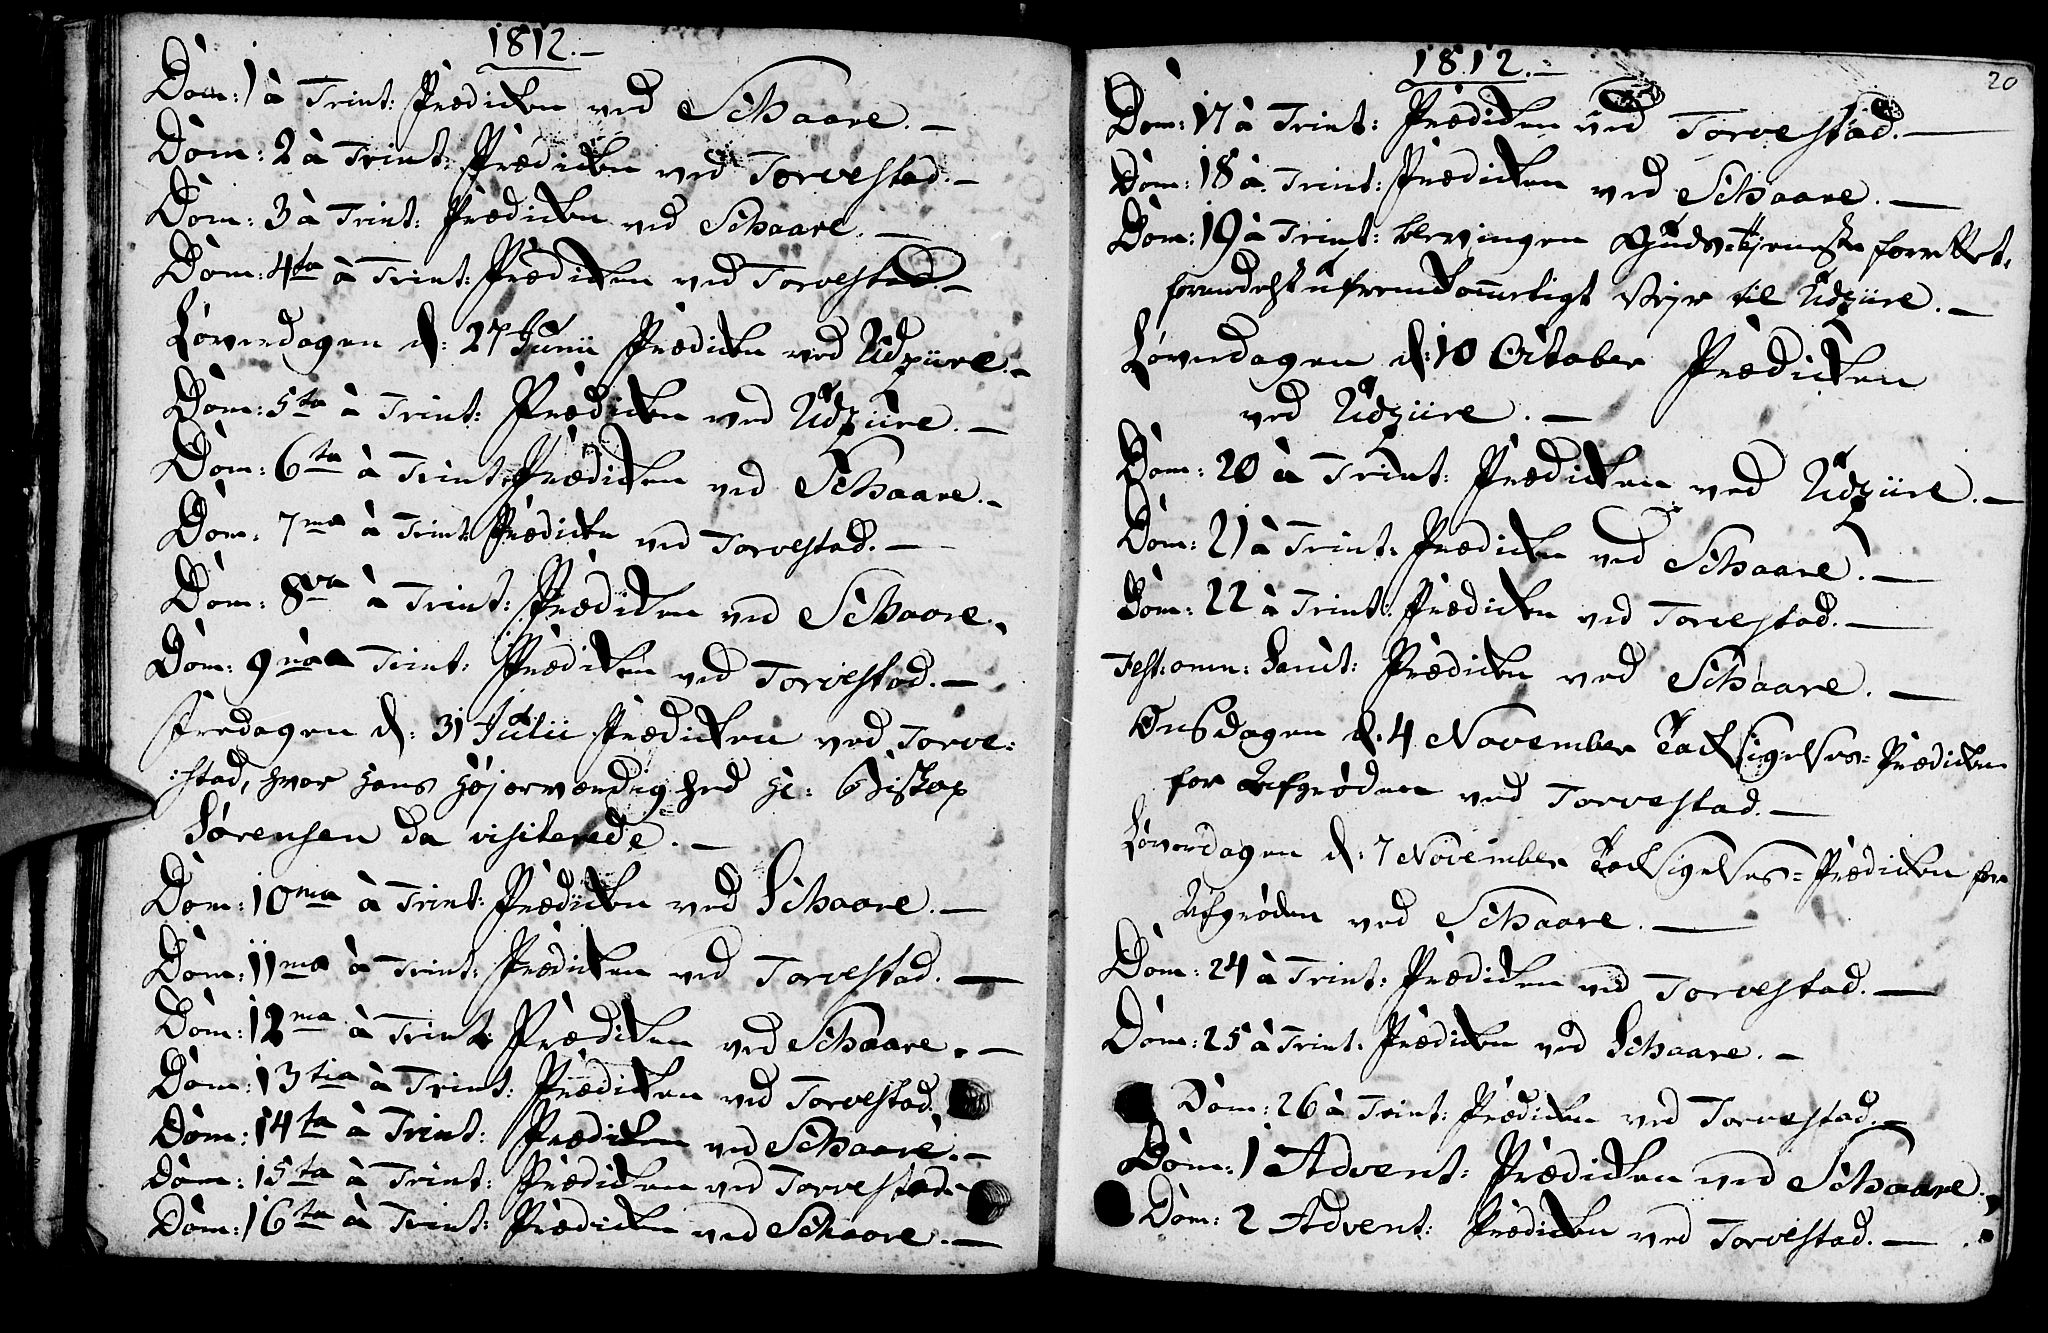 1812.—
Dom: 1 à Trint: Prædicken ved Schaare.—
Dom: 2 à Trint: Prædicken ved Torvestad.—
Dom: 3 à Trint: Prædicken ved Schaare.—
Dom: 4ta à Trint: Prædicken ved Torvestad.—
Løverdagen d: 27 Junii Prædicken ved Udziire.—
Dom: 5ta à Trint: Prædicken ved Udziire.—
Dom: 6ta à Trint: Prædicken ved Schaare.—
Dom: 7ma à Trint: Prædicken ved Torvestad.—
Dom: 8va à Trint: Prædicken ved Schaare.
Dom: 9na à Trint: Prædicken ved Torvestad.—
Fredagen d: 31 Julii Prædicken ved Torve=
=stad, hvor Hans Højærværdighed Hr: Biskop
Sørensen da visiterede.—
Dom: 10ma à Trint: Prædicken ved Schaare.—
Dom: 11ma à Trint: Prædicken ved Torvestad.—
Dom: 12ma à Trint: Prædicken ved Schaare.—
Dom: 13tia à Trint: Prædicken ved Torvestad.
Dom: 14ta à Trint: Prædicken ved Schaare.—
Dom: 15ta à Trint: Prædicken ved Torvestad.—
Dom: 16ta à Trint: Prædicken ved Schaare.—
20
1812.—
Dom: 17 à Trint: Prædicken ved Torvestad.—
Dom: 18 à Trint: Prædicken ved Schaare.—
Dom: 19 à Trint: Gudstjeneste forrettet,
formedelst ufremkommeligt Vejr til Udziire.—
Løverdagen d: 10 October Prædicken
ved Udziire.—
Dom: 20 à Trint: Prædicken ved Udziire.—
Dom: 21 à Trint: Prædicken ved Schaare.—
Dom: 22 à Trint: Prædicken ved Torvestad.—
Fest: omn: Sanct: Prædicken ved Schaare.—
Onsdagen d: 4 November Tacksigelses=Prædicken
for Afgrøden ved Torvestad.—
Løverdagen d: 7 November Tacksigelses=Prædicken for
Afgrøden ved Schaare.—
Dom: 24 à Trint: Prædicken ved Torvestad.—
Dom: 25 à Trint: Prædicken ved Schaare.—
Dom: 26 à Trint: Prædicken ved Torvestad.—
Dom: 1 Advent: Prædicken ved Schaare.
Dom: 2 Advent: Prædicken ved Torvestad.—